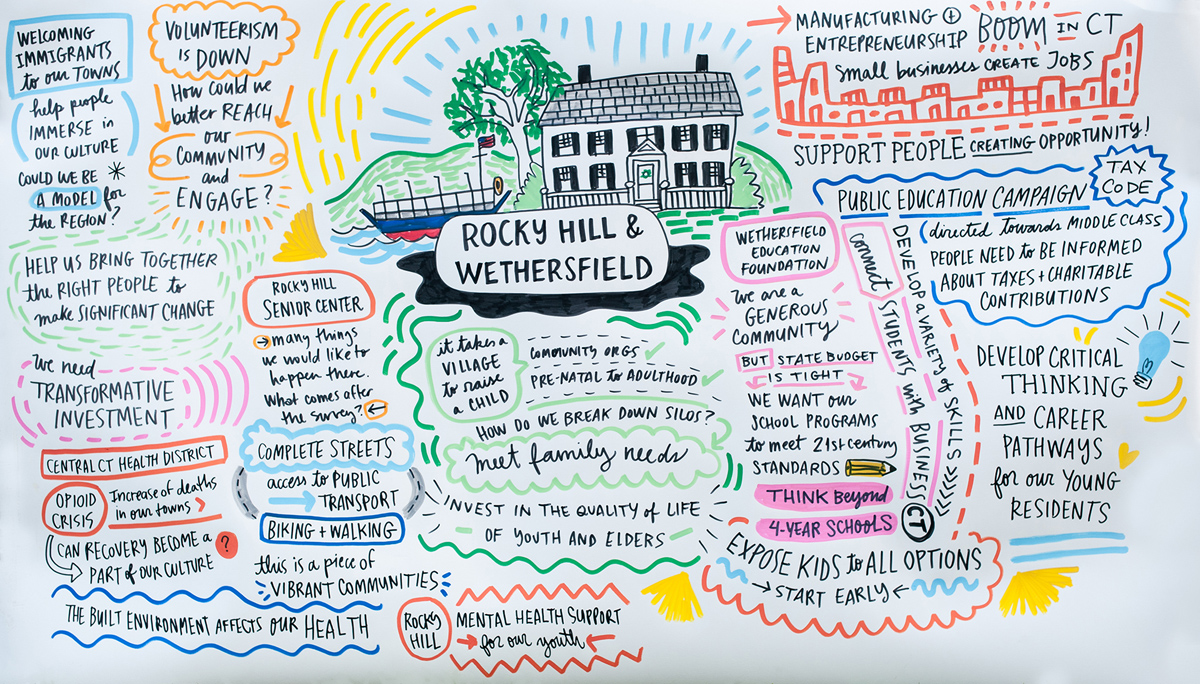 WELCOMING
IMMIGRANTS
to our TOWNS
help people
IMMERSE in
OUR CULTURE
COULD WE BE *
A MODEL for
the REGION?
VOLUNTEERISM
is DOWN
How could we
better REACH
our
COMMUNITY
and
ENGAGE?
HELP US BRING TOGETHER
the RIGHT PEOPLE to
make SIGNIFICANT CHANGE
We need
TRANSFORMATIVE
INVESTMENT
CENTRAL CT HEALTH DISTRICT
OPIOID
CRISIS
Increase of deaths
in our towns
CAN RECOVERY BECOME a
PART of OUR CULTURE ?
THE BUILT ENVIRONMENT AFFECTS OUR HEALTH
ROCKY HILL
SENIOR CENTER
→ many things
we would like to
happen there.
What comes after
the survey? ←
COMPLETE STREETS
access to PUBLIC
→ TRANSPORT
BIKING + WALKING
this is a piece of
VIBRANT COMMUNITIES
ROCKY
HILL
MENTAL HEALTH SUPPORT
→ for our youth ←
ROCKY HILL &
WETHERSFIELD
it takes a
VILLAGE
to raise
a CHILD
COMMUNITY ORGS ✓
PRE-NATAL to ADULTHOOD ✓
HOW DO WE BREAK DOWN SILOS?
meet family needs
INVEST IN THE QUALITY of LIFE
OF YOUTH AND ELDERS
→ MANUFACTURING +
ENTREPRENEURSHIP BOOM IN CT
small businesses CREATE JOBS
SUPPORT PEOPLE CREATING OPPORTUNITY!
TAX
CODE
PUBLIC EDUCATION CAMPAIGN
(directed towards MIDDLE CLASS)
PEOPLE NEED to BE INFORMED
ABOUT TAXES + CHARITABLE
CONTRIBUTIONS
WETHERSFIELD
EDUCATION
FOUNDATION
We are a
GENEROUS
COMMUNITY
BUT STATE BUDGET
IS TIGHT
WE WANT our
SCHOOL PROGRAMS
to meet 21st Century
STANDARDS
THINK Beyond
4-YEAR SCHOOLS
connect STUDENTS with BUSINESS
CT
DEVELOP a VARIETY of SKILLS
EXPOSE KIDS to ALL OPTIONS
→ START EARLY ←
DEVELOP CRITICAL
THINKING
AND CAREER
PATHWAYS
for our YOUNG
RESIDENTS